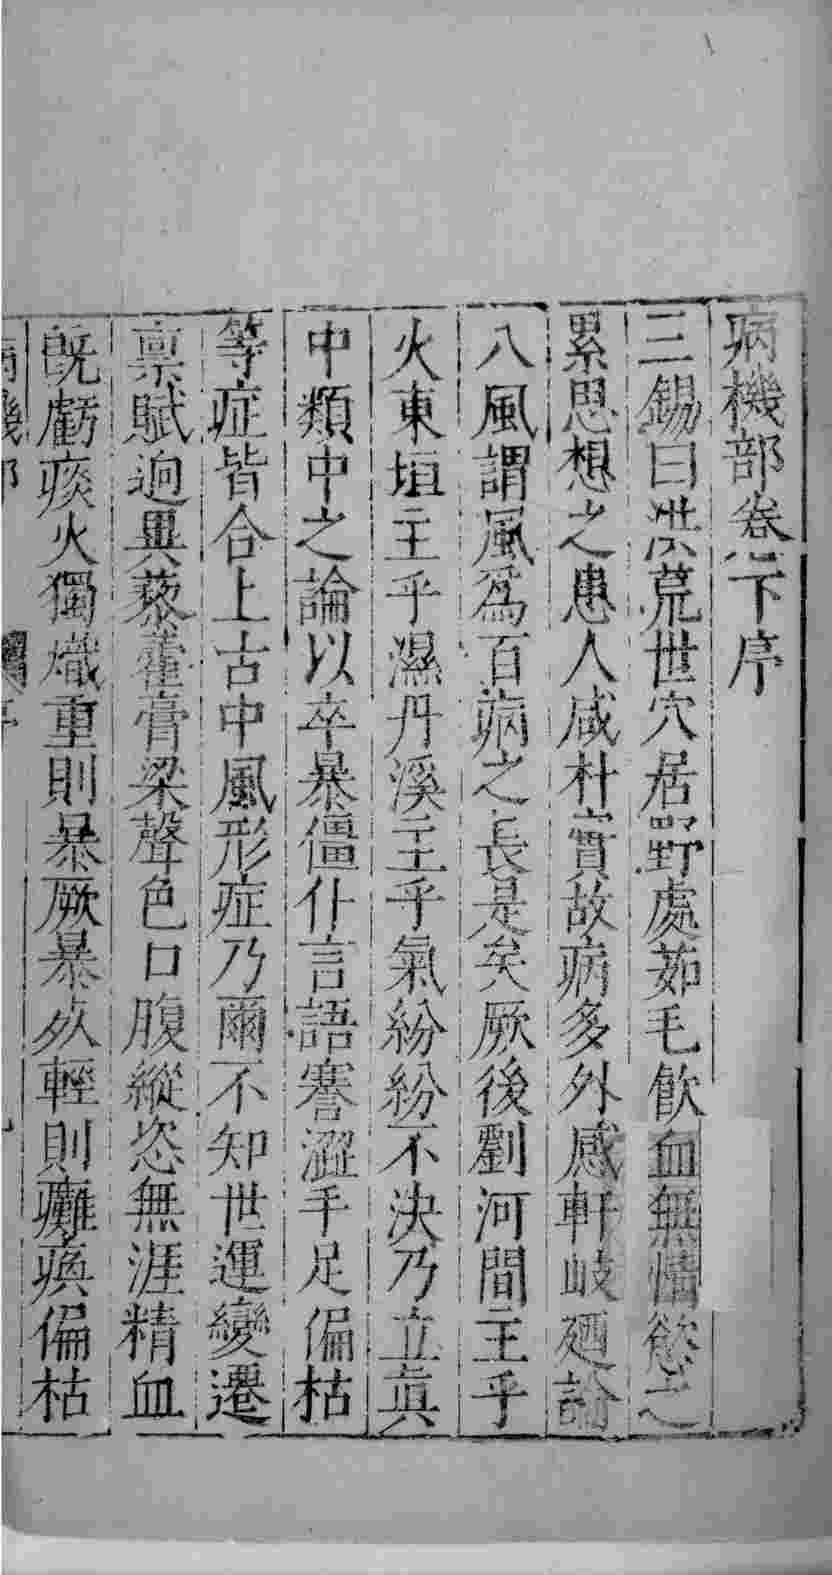 病機部卷下序
三錫曰洪荒世穴居野處茹毛飲血無情慾之
累思想之患人咸朴實故病多外感軒岐廼論
八風謂風爲百病之長是矣厥後劉河間主乎
火東垣主乎濕丹溪主乎氣紛紛不決乃立眞
中類中之論以卒暴僵仆言語謇澀手足偏枯
等症皆合上古中風形症乃爾不知世運變遷
禀賦逈異藜藿膏梁聲色口腹縱恣無涯精血
旣虧痰火獨熾重則暴厥暴死輕則癱瘓偏枯
病機部